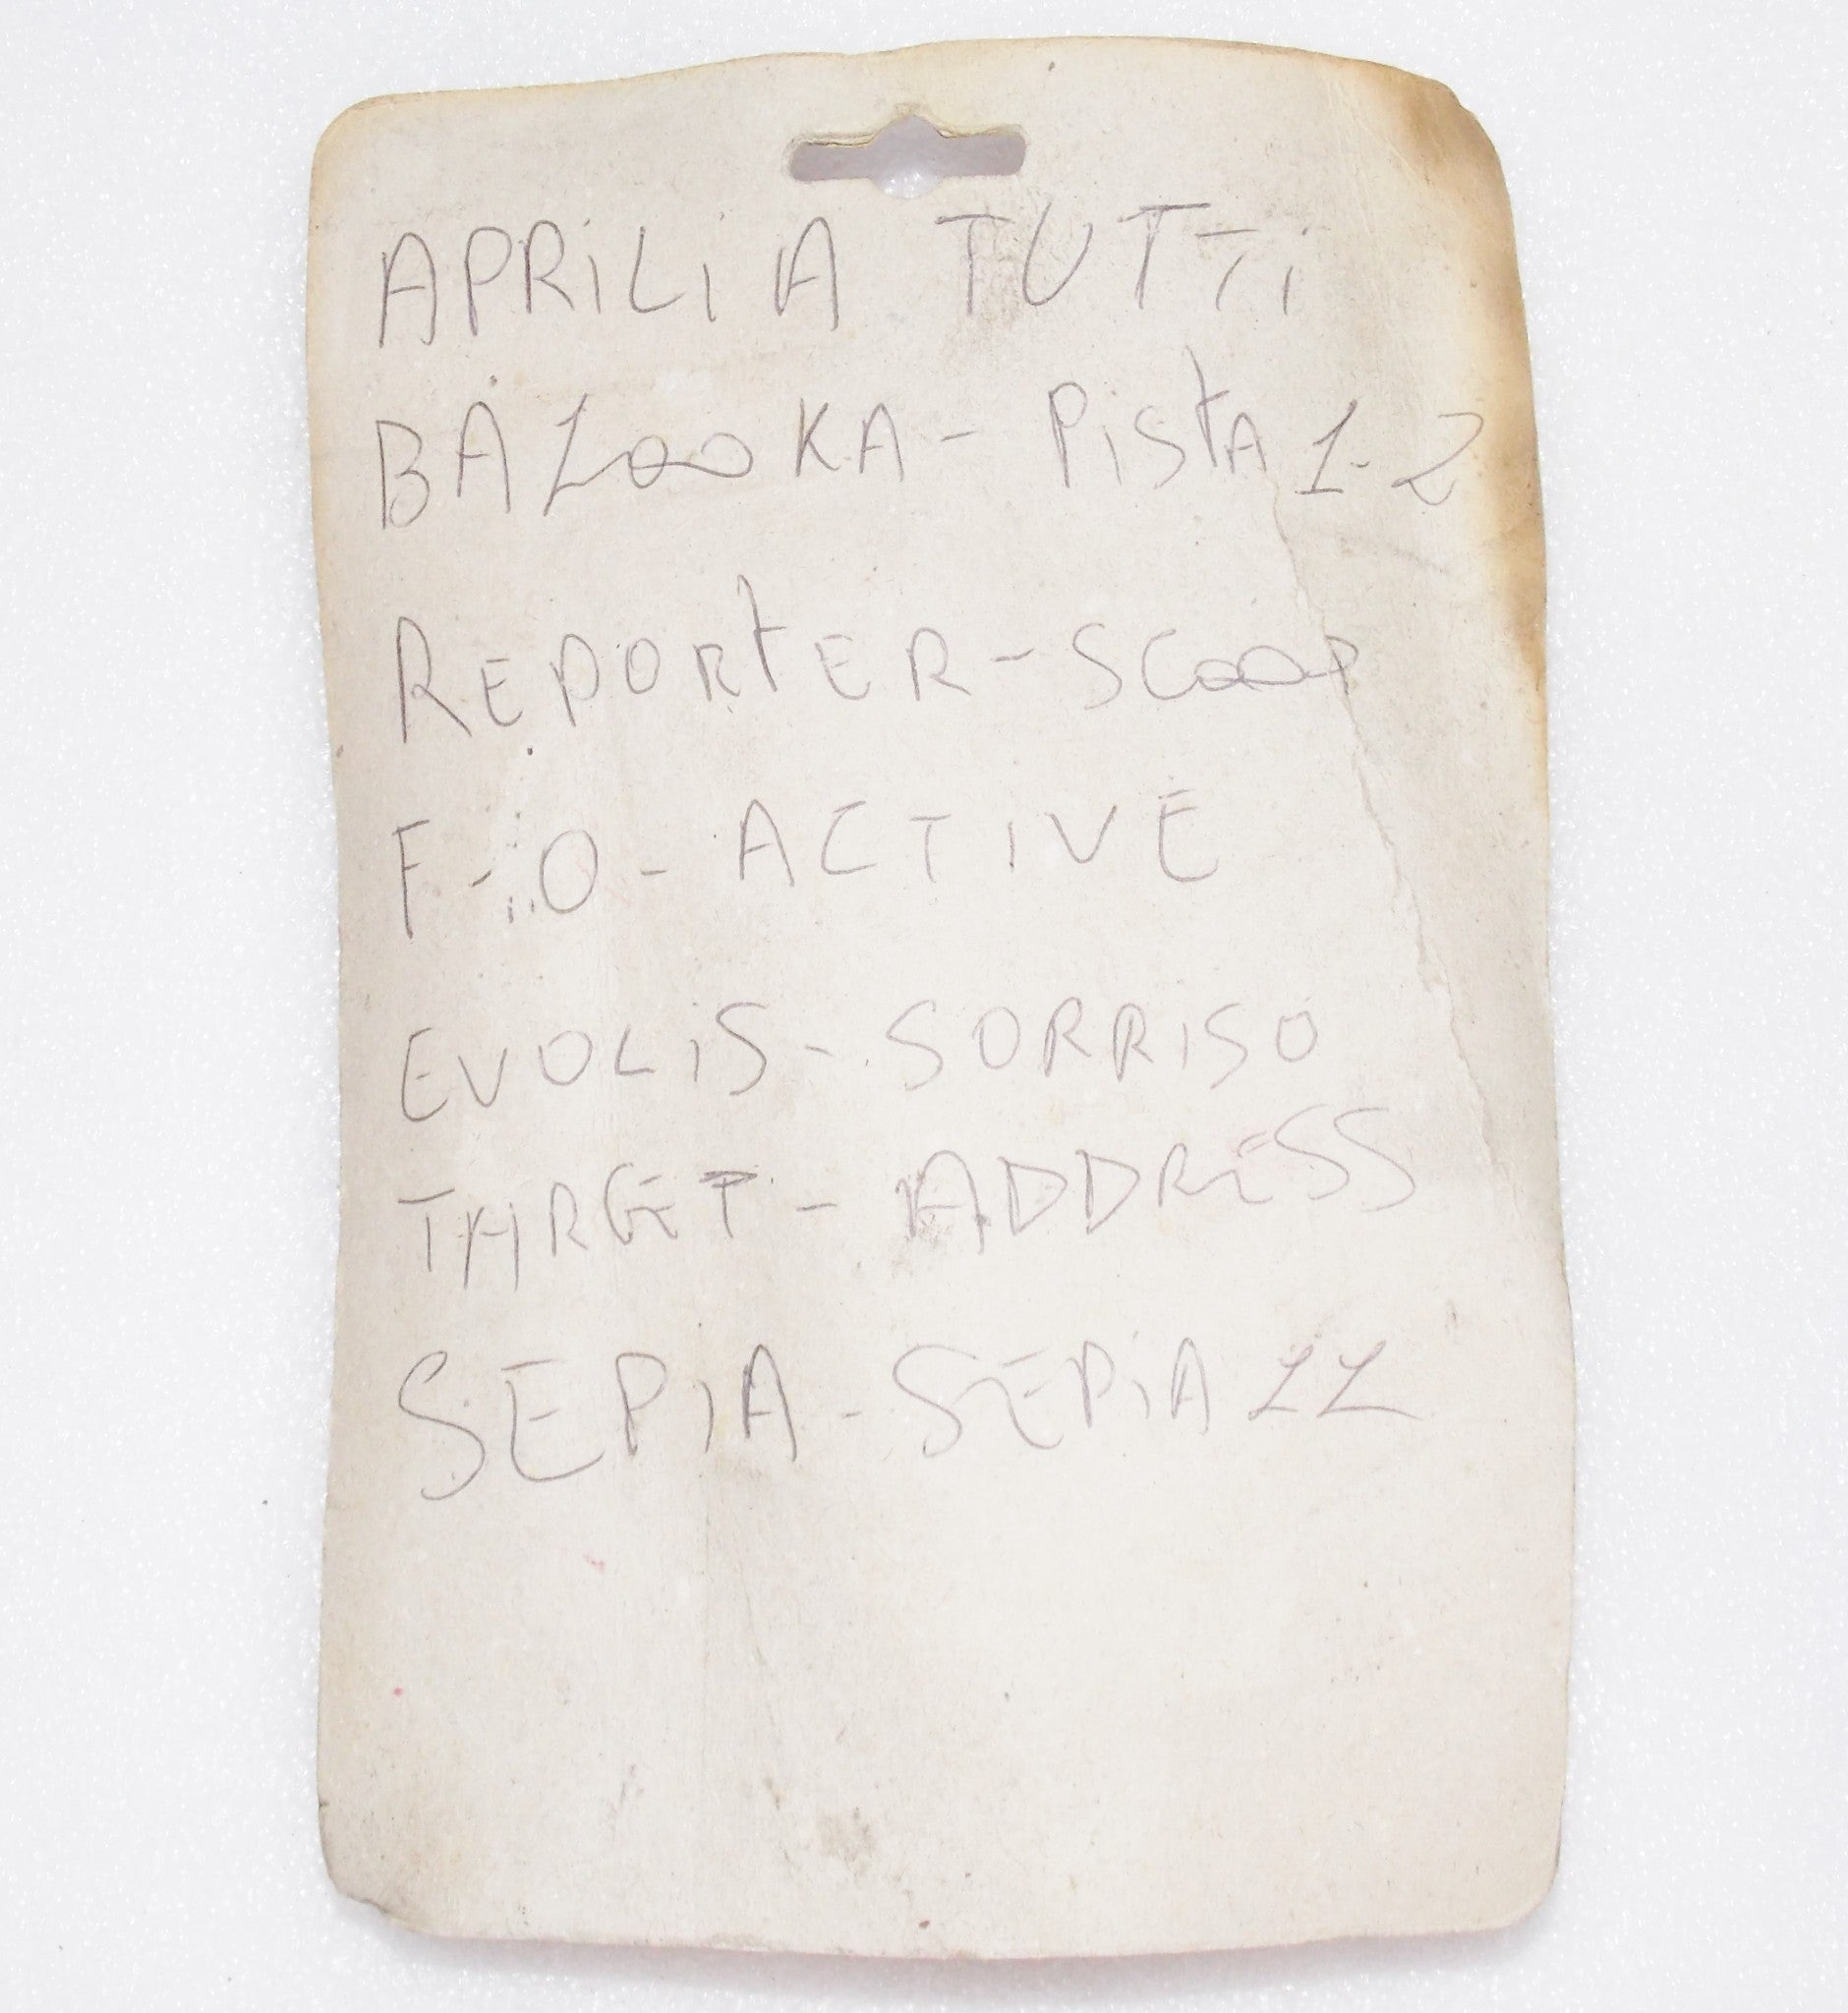 APRILIA TUTTI
BAZOOKA - PISTA 1-2
REPORTER - SCOOP
F-10 - ACTIVE
EVOLIS - SORRISO
TARGET - ADDRESS
SEPIA - SEPIA ZZ